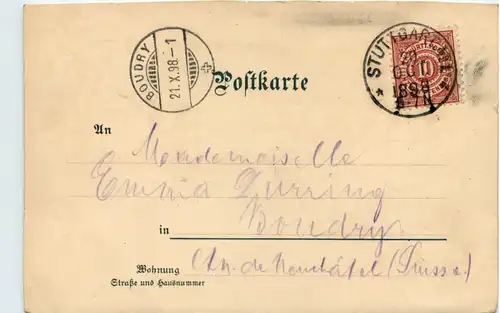 BOUDRY
21.X.98.-1
STUTTGART
OCT
1898
6-7N
10
Postkarte
An
Mademoiselle
Emma Dürring
in Boudry
Ctn. de Neuchâtel (Suisse)
Wohnung
Straße und Hausnummer